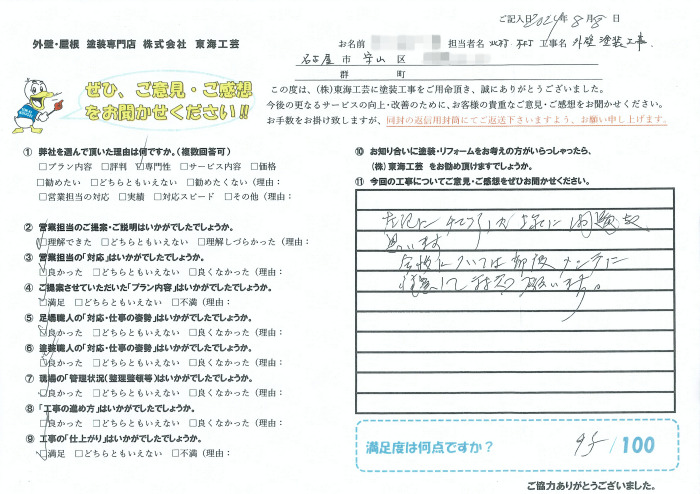 ご記入日 2024年 8月 8日
外壁・屋根 塗装専門店 株式会社 東海工芸
お名前 担当者名 工事名 外壁塗装工事
名古屋 市 守山 区
群 町
ぜひ、ご意見・ご感想
をお聞かせください!!
この度は、(株)東海工芸に塗装工事をご用命頂き、誠にありがとうございました。
今後の更なるサービスの向上・改善のために、お客様の貴重なご意見・ご感想をお聞かせください。
お手数をお掛け致しますが、同封の返信用封筒にてご返送下さいますよう、お願い申し上げます。
① 弊社を選んで頂いた理由は何ですか。(複数回答可)
□プラン内容 □評判 ☑専門性 □サービス内容 □価格
□勧めたい □どちらともいえない □勧めたくない(理由:
□営業担当の対応 □実績 □対応スピード □その他(理由:
② 営業担当のご提案・ご説明はいかがでしたでしょうか。
☑理解できた □どちらともいえない □理解しづらかった(理由:
③ 営業担当の「対応」はいかがでしたでしょうか。
☑良かった □どちらともいえない □良くなかった(理由:
④ ご提案させていただいた「プラン内容」はいかがでしたでしょうか。
☑満足 □どちらともいえない □不満(理由:
⑤ 足場職人の「対応・仕事の姿勢」はいかがでしたでしょうか。
☑良かった □どちらともいえない □良くなかった(理由:
⑥ 塗装職人の「対応・仕事の姿勢」はいかがでしたでしょうか。
☑良かった □どちらともいえない □良くなかった(理由:
⑦ 現場の「管理状況(整理整頓等)はいかがでしたでしょうか。
☑良かった □どちらともいえない □良くなかった(理由:
⑧ 「工事の進め方」はいかがでしたでしょうか。
☑良かった □どちらともいえない □良くなかった(理由:
⑨ 工事の「仕上がり」はいかがでしたでしょうか。
☑満足 □どちらともいえない □不満(理由:
⑩ お知り合いに塗装・リフォームをお考えの方がいらっしゃったら、
(株)東海工芸 をお勧め頂けますでしょうか。
⑪ 今回の工事についてご意見・ご感想をぜひお聞かせください。
思います
については
願います。
満足度は何点ですか? 95 /100
ご協力ありがとうございました。